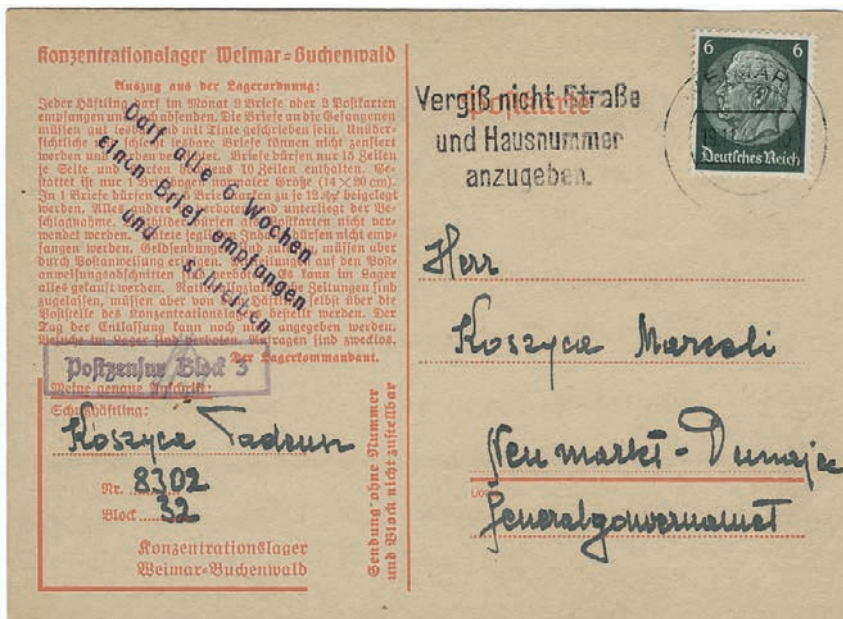 Konzentrationslager Weimar=Buchenwald
Auszug aus der Lagerordnung:
Jeder Häftling darf im Monat 2 Briefe oder 2 Postkarten
empfangen und auch absenden. Die Briefe an die Gefangenen
müssen gut lesbar und mit Tinte geschrieben sein. Unüber=
sichtliche und schlecht lesbare Briefe können nicht zensiert
werden und werden vernichtet. Briefe dürfen nur 15 Zeilen
je Seite und Karten höchstens 10 Zeilen enthalten. Ge=
stattet ist nur 1 Briefbogen normaler Größe (14×20 cm).
In 1 Briefe dürfen 5 Briefmarken zu je 12 beigelegt
werden. Alles andere ist verboten und unterliegt der Be=
schlagnahme. Lichtbilder dürfen als Postkarten nicht ver=
wendet werden. Pakete jeglichen Inhalts dürfen nicht emp=
fangen werden. Geldsendungen sind zulässig, müssen aber
durch Postanweisung erfolgen. Mitteilungen auf den Post=
anweisungsabschnitten sind verboten. Es kann im Lager
alles gekauft werden. Nationalsozialistische Zeitungen sind
zugelassen, müssen aber von dem Häftling selbst über die
Poststelle des Konzentrationslagers bestellt werden. Der
Tag der Entlassung kann noch nicht angegeben werden.
Besuche im Lager sind verboten. Anfragen sind zwecklos.
Der Lagerkommandant.
Darf alle 6 Wochen
einen Brief empfangen
und schreiben
Postzensur Block 3
Meine genaue Anschrift:
Schutzhäftling:
Koszyca Tadeusz
Nr. 8302
Block 32
Konzentrationslager
Weimar=Buchenwald
Sendung ohne Nummer
und Block nicht zustellbar
Postkarte
Vergiß nicht Straße
und Hausnummer
anzugeben.
WEIMAR
6 6
Deutsches Reich
Herr
Koszyca Marceli
Neumarkt-Dunajec
Generalgouvernament